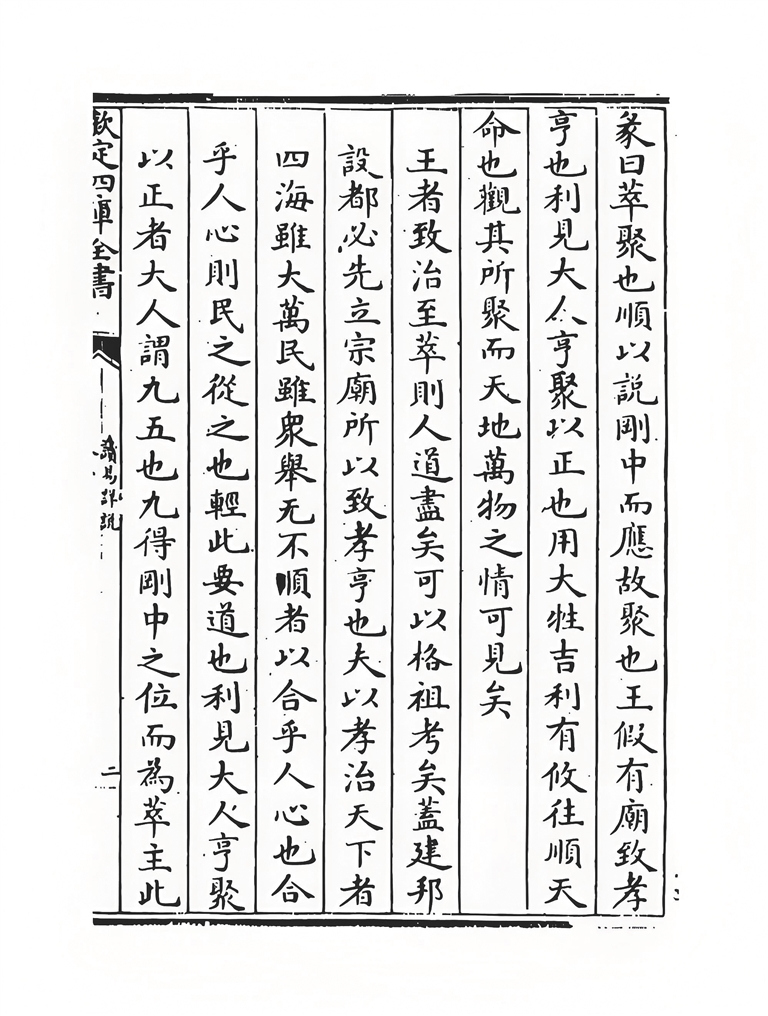 彖曰萃聚也順以說剛中而應故聚也王假有廟致孝
亨也利見大人亨聚以正也用大牲吉利有攸往順天
命也觀其所聚而天地萬物之情可見矣
王者致治至萃則人道盡矣可以格祖考矣蓋建邦
設都必先立宗廟所以致孝亨也夫以孝治天下者
四海雖大萬民雖衆舉无不順者以合乎人心也合
乎人心則民之從之也輕此要道也利見大人亨聚
以正者大人謂九五也九得剛中之位而為萃主此
欽定四庫全書
讀易詳說
二